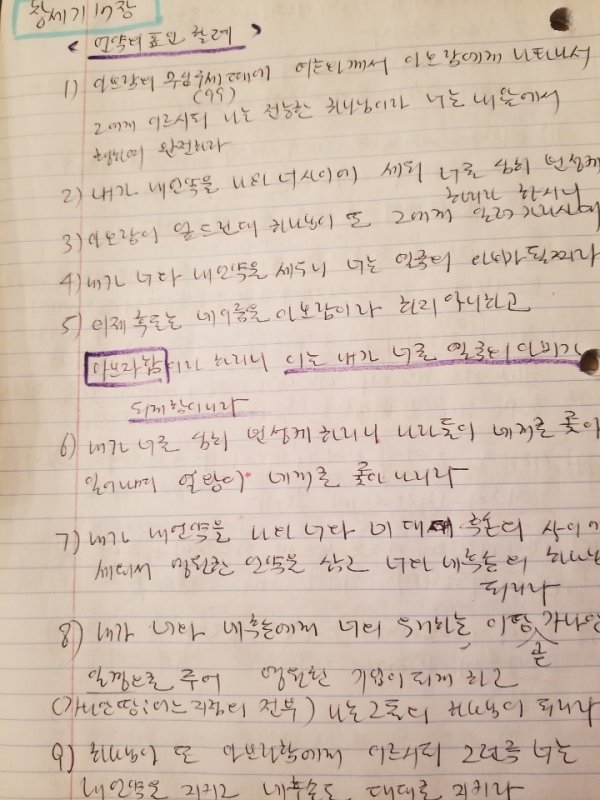 창세기 17장
< 언약의 표인 할례 >
1) 아브람의 구십구세 때에 여호와께서 아브람에게 나타나서
(99)
그에게 이르시되 나는 전능한 하나님이라 너는 내앞에서
행하여 완전하라
2) 내가 내언약을 나와 너 사이에 세워 너로 심히 번성케
하리라 하시니
3) 아브람이 엎드린대 하나님이 또 그에게 일러 가라사대
4) 내가 너와 내언약을 세우니 너는 열국의 아비가 될찌라
5) 이제 후로는 네이름을 아브람이라 하지 아니하고
아브라함이라 하리니 이는 내가 너로 열국의 아비가
되게 함이니라
6) 내가 너로 심히 번성케 하리니 나라들이 네게로 좇아
일어나며 열왕이 네게로 좇아 나리라
7) 내가 내언약을 나와 너와 네 대대 후손의 사이에
세워서 영원한 언약을 삼고 너와 네후손의 하나님
되리라
8) 내가 너와 네후손에게 너의 우거하는 이땅 가나안
곧
일경으로 주어 영원한 기업이 되게 하고
(가나안땅: 어느지경의 전부) 나는 그들의 하나님이 되리라
9) 하나님이 또 아브라함에게 이르시되 그런즉 너는
내언약을 지키고 네후손도 대대로 지키라